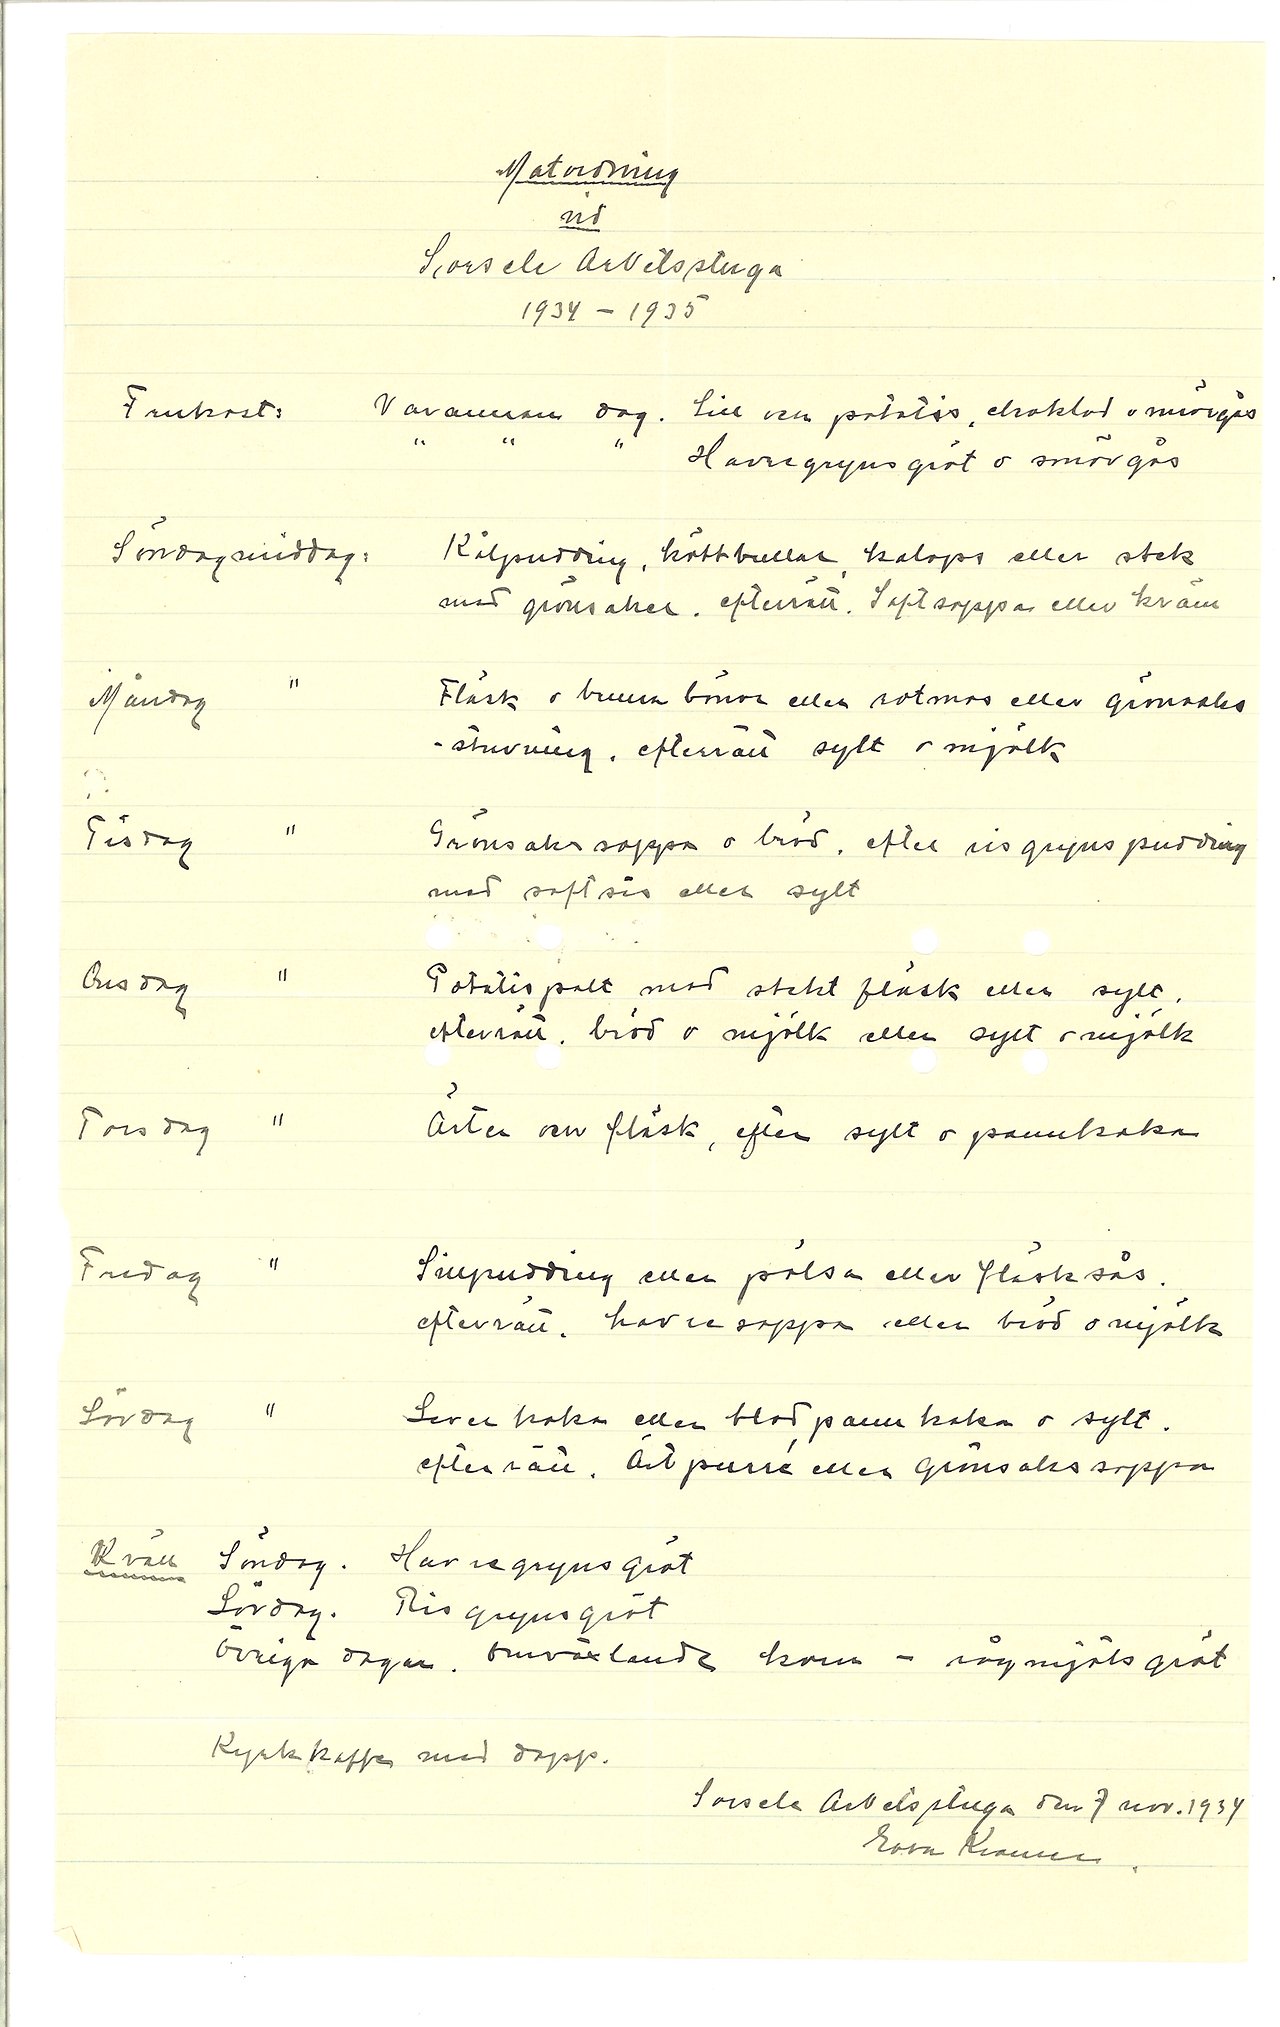 Matordning
vid
Sorsele Arbetsstuga
1934 – 1935
Frukost: Varannan dag. Sill och potatis, choklad o smörgås
" " " Havregrynsgröt o smörgås
Söndagmiddag: Kålpudding, köttbullar, kalops eller stek
med grönsaker. efterrätt. Saftsoppa eller kräm
Måndag " Fläsk o bruna bönor eller rotmos eller grönsaks
-stuvning. efterrätt sylt o mjölk
Tisdag " Grönsakssoppa o bröd. efter risgrynspudding
med saftsås eller sylt
Onsdag " Potatispalt med stekt fläsk eller sylt.
efterrätt. bröd o mjölk eller sylt o mjölk
Torsdag " Ärter och fläsk, efter sylt o pannkaka
Fredag " Sillpudding eller pölsa eller fläsksås.
efterrätt. havresoppa eller bröd o mjölk
Lördag " Leverkaka eller blodpannkaka o sylt.
efterrätt. Ärtpurré eller Grönsakssoppa
Kväll Söndag. Havregrynsgröt
Lördag. Risgrynsgröt
Övriga dagar. Omväxlande korn – rågmjölsgröt
Kyrkkaffe med dopp.
Sorsele Arbetsstuga den 7 nov. 1934